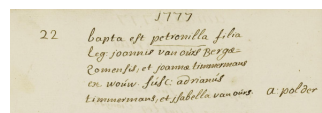 1777
22 bapta est petronilla filia
leg: joannis van oürs Bergæ-
zomensis, et joannæ timmermans
en wouw. süsc: adrianus
timmermans, et jsabella van oürs. a polder